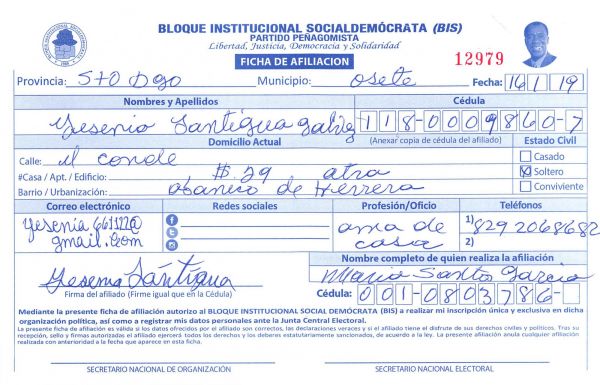 BLOQUE INSTITUCIONAL SOCIALDEMÓCRATA (BIS)
PARTIDO PEÑAGOMISTA
Libertad, Justicia, Democracia y Solidaridad
FICHA DE AFILIACION
12979
Provincia: STO Dgo Municipio: osete Fecha: 16/1/19
Nombres y Apellidos Cédula
Yesenia Santigua galvez 118-0009860-7
Domicilio Actual (Anexar copia de cédula del afiliado) Estado Civil
Calle: el conde Casado
#Casa / Apt. / Edificio: #. 29 atra Soltero
Barrio / Urbanización: de Herrera Conviviente
Correo electrónico Redes sociales Profesión/Oficio Teléfonos
yesenia661322@ ama de 1) 829 2068682
gmail.com casa 2)
Nombre completo de quien realiza la afiliación
Yesenia Santigua Maria Santo Garcia
Firma del afiliado (Firme igual que en la Cédula) Cédula: 001-0803786-
Mediante la presente ficha de afiliación autorizo al BLOQUE INSTITUCIONAL SOCIAL DEMÓCRATA (BIS) a realizar mi inscripción única y exclusiva en dicha
organización política, así como a registrar mis datos personales ante la Junta Central Electoral.
La presente ficha de afiliación es válida si los datos ofrecidos por el afiliado son correctos, las declaraciones veraces y si el afiliado tiene el disfrute de sus derechos civiles y políticos. Tras su
recepción, sello y firmas autorizadas el afiliado ejercerá todos los derechos y los deberes estatutariamente sancionados, de acuerdo a la ley. La presente afiliación anula cualquier afiliación
realizada con anterioridad a la fecha que aparece en esta ficha.
SECRETARIO NACIONAL DE ORGANIZACIÓN SECRETARIO NACIONAL ELECTORAL